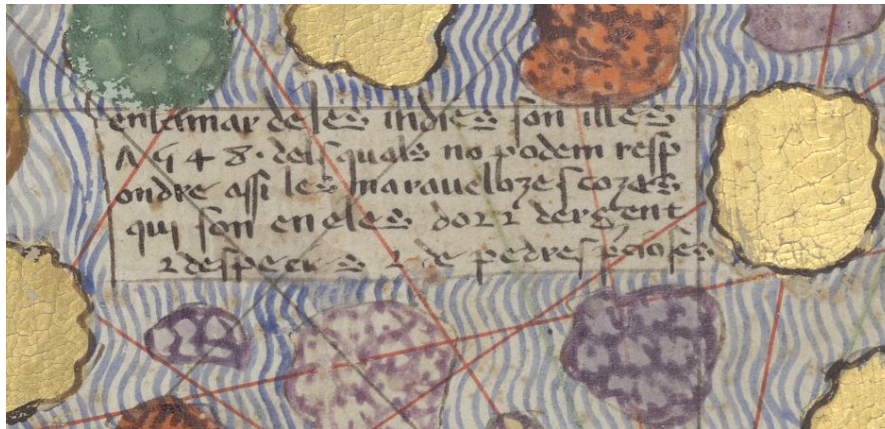 en la mar de les indies son illes
7548. dels quals no podem resp
ondre assi les maravelozes cozes
qui son en eles dor 2 dergent
2 despecies 2 de pedres precioses